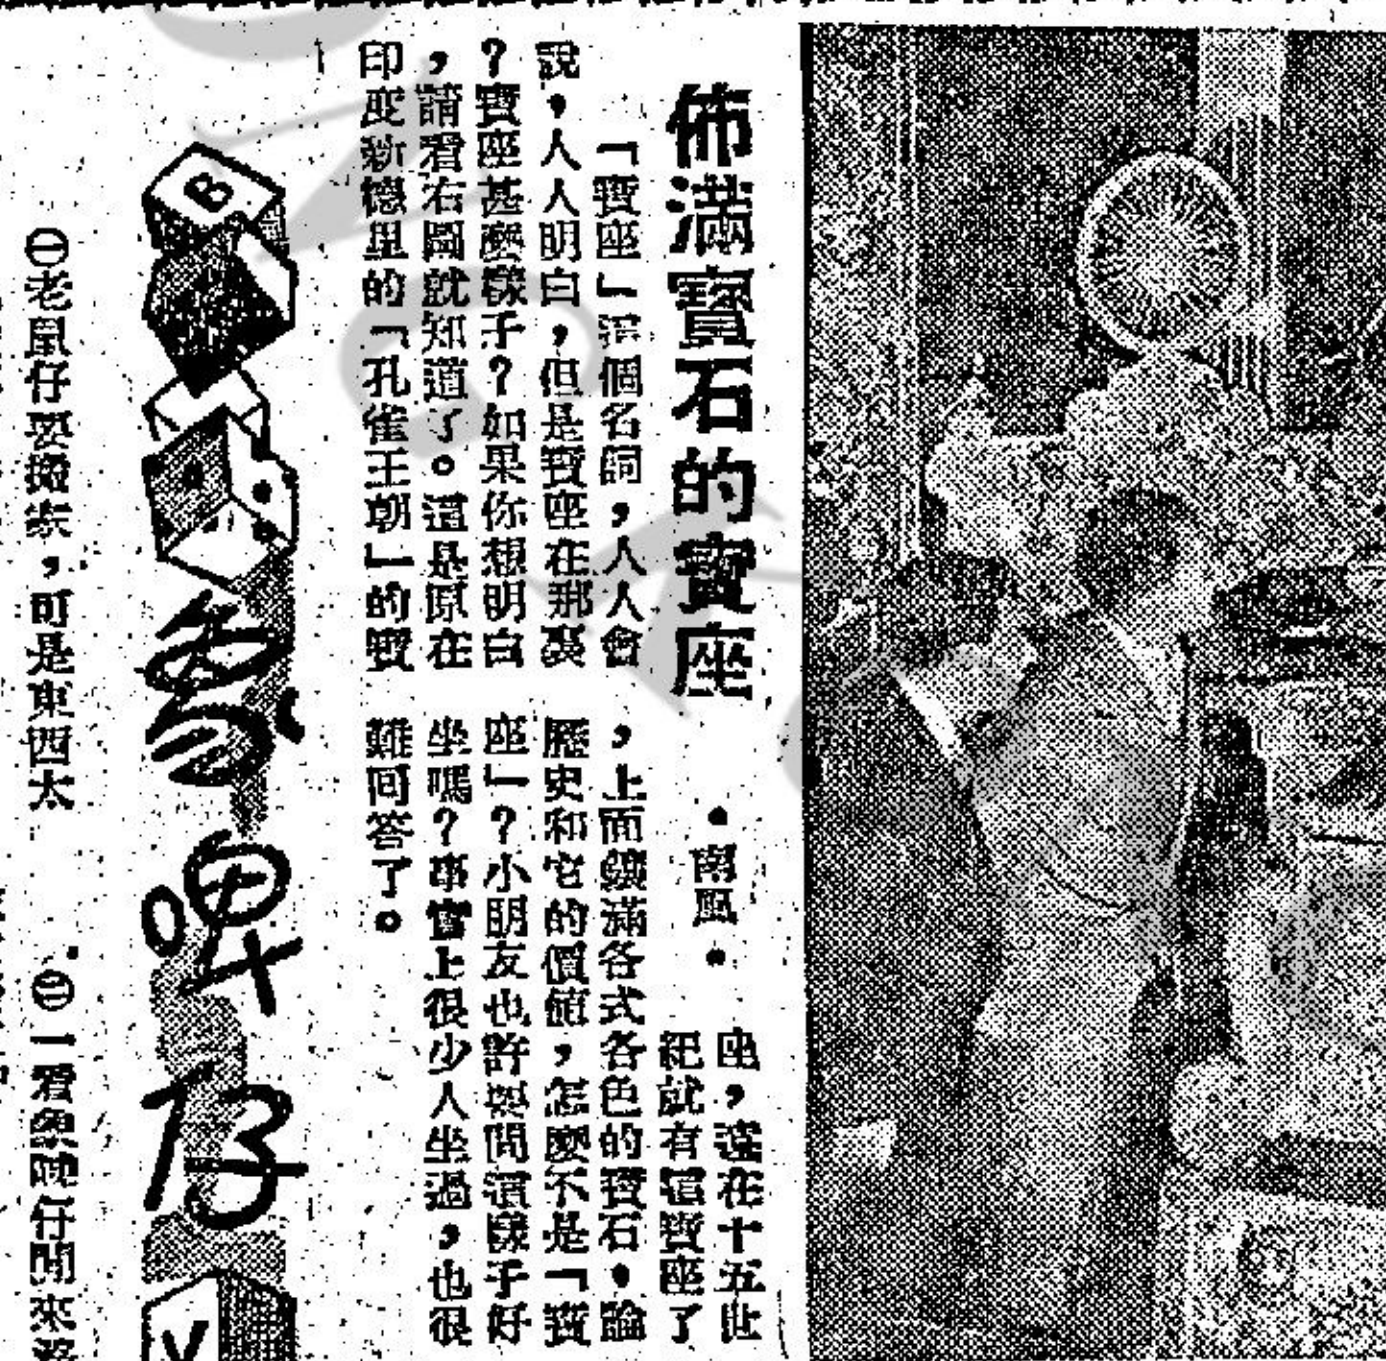 佈滿寶石的寶座
•南風•
「寶座」這個名詞，人人會
說，人人明白，但是寶座在那裏
？寶座甚麼樣子？如果你想明白
，請看右圖就知道了。這是原在
印度新德里的「孔雀王朝」的寶
座，遠在十五世
紀就有這寶座了
，上面鑲滿各式各色的寶石，論
歷史和它的價值，怎麼不是「寶
座」？小朋友也許要問這樣子好
坐嗎？事實上很少人坐過，也很
難回答了。
B
象啤仔
V
㊀老鼠仔要搬家，可是東西太
㊁一看象啤仔閒來